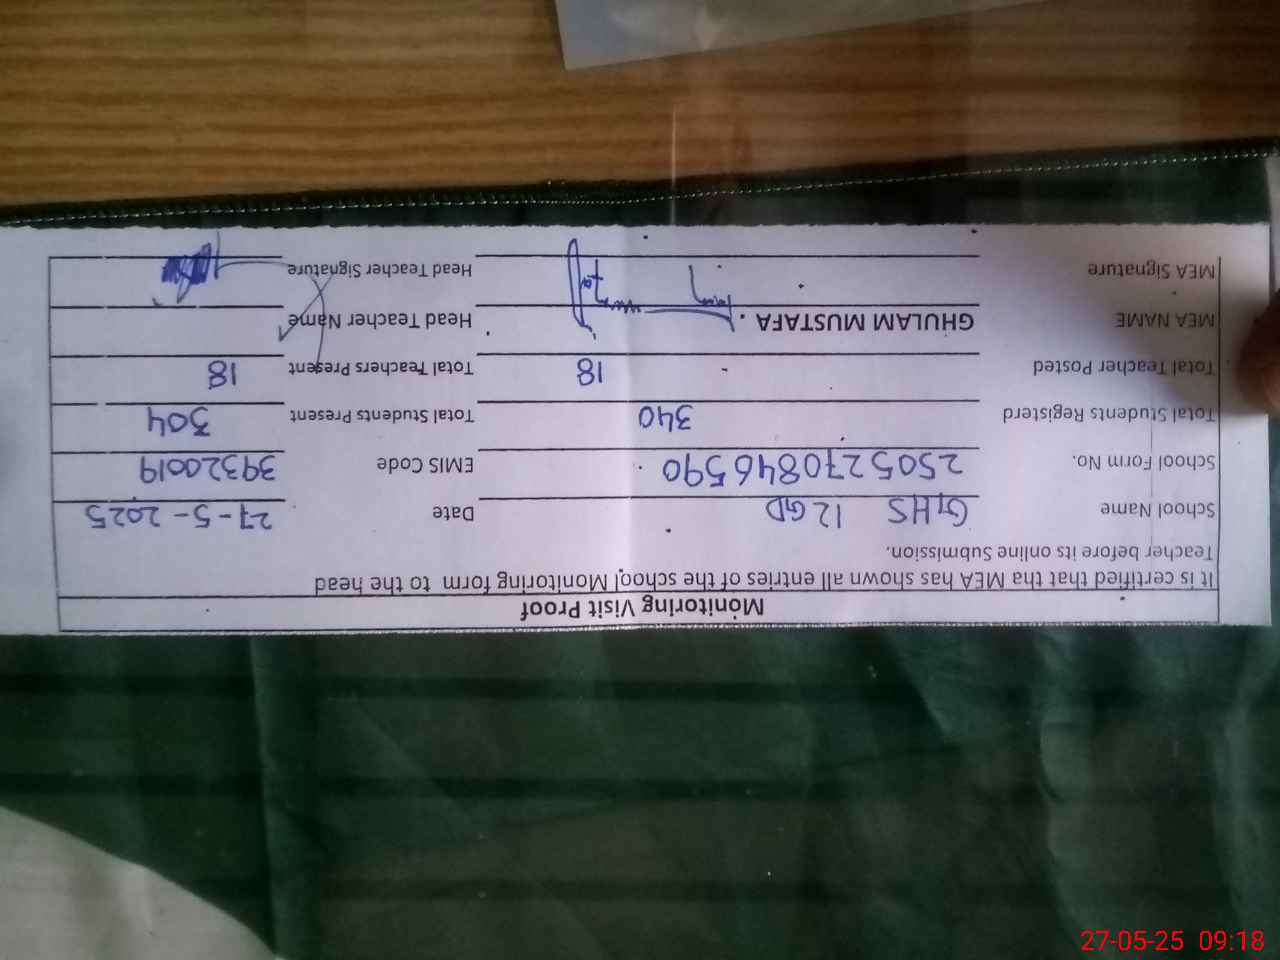 Monitoring Visit Proof
It is certified that tha MEA has shown all entries of the school Monitoring form to the head
Teacher before its online Submission.
School Name GHS 12GD Date 27-5-2025
School Form No. 2505270846590 EMIS Code 39320019
Total Students Registerd 340 Total Students Present 304
Total Teacher Posted 18 Total Teachers Present 18
MEA NAME GHULAM MUSTAFA. Head Teacher Name
MEA Signature Head Teacher Signature
27-05-25 09:18